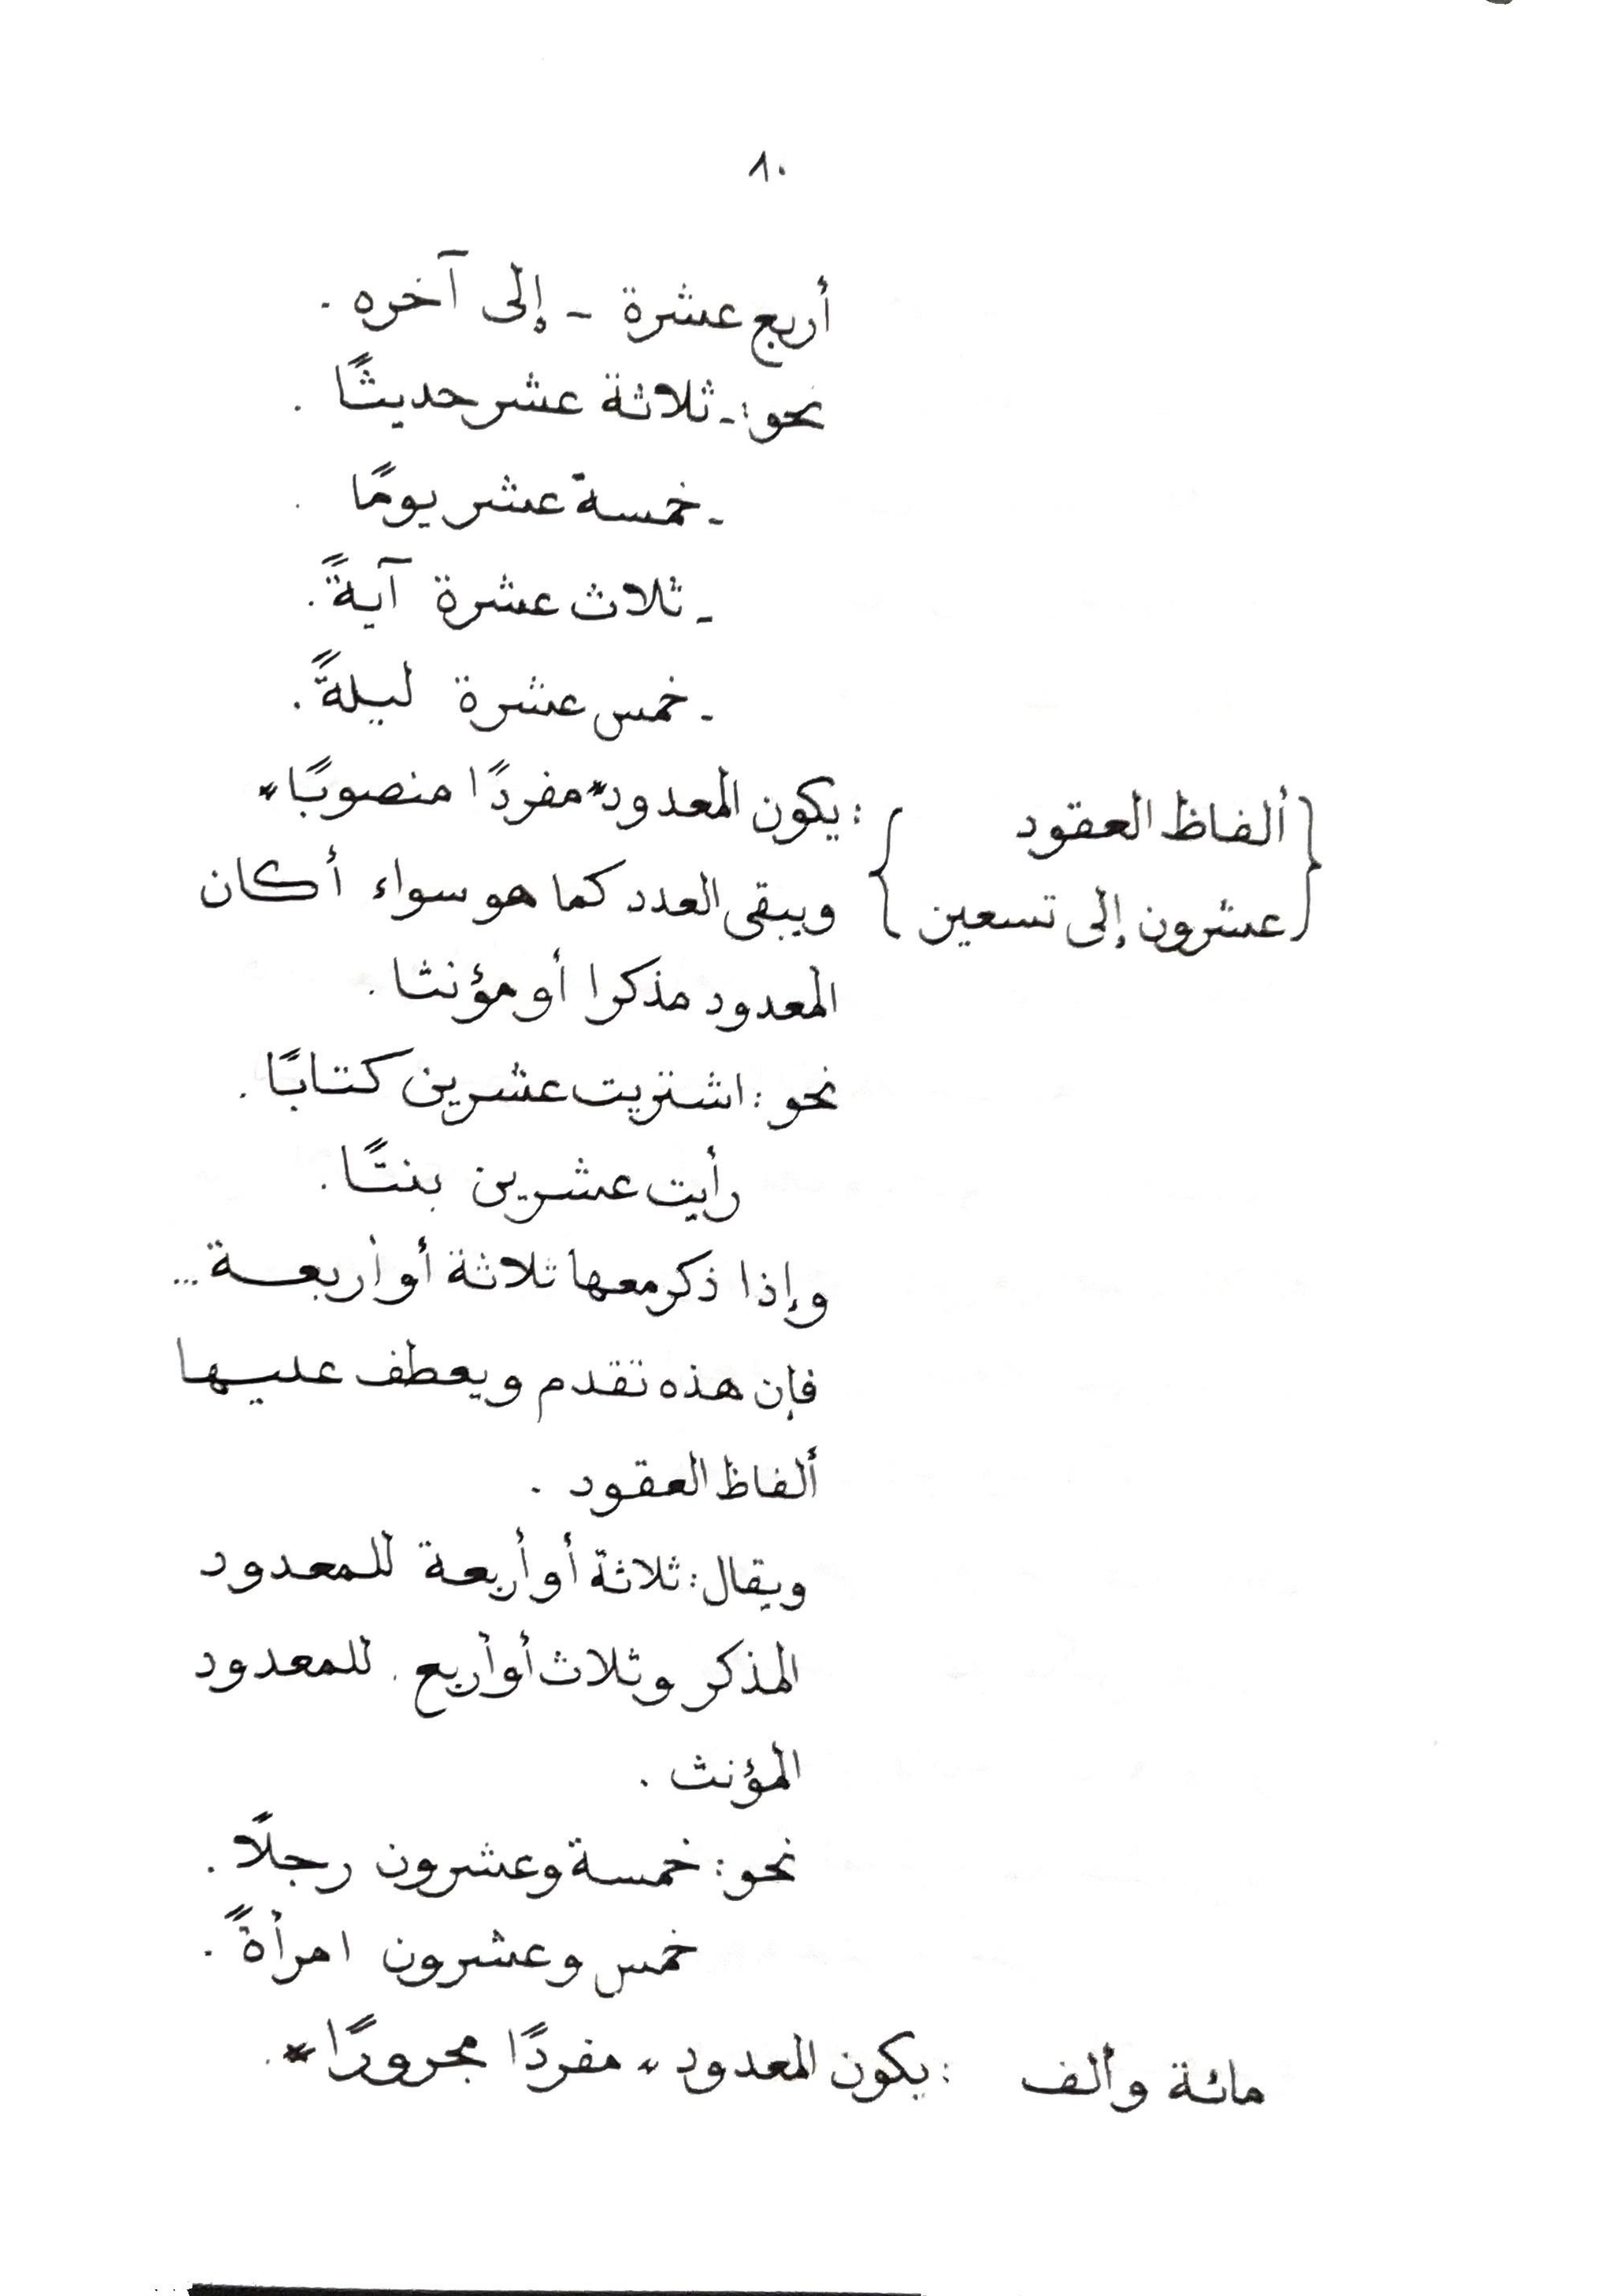 ٨٠
أربع عشرة - إلى آخره .
نحو :- ثلاثة عشر حديثًا .
- خمسة عشر يومًا .
- ثلاث عشرة آيةً .
- خمس عشرة ليلةً .
{ ألفاظ العقود } : يكون المعدود "مفردًا منصوبًا"
{ عشرون إلى تسعين } ويبقى العدد كما هو سواء أكان
المعدود مذكرا أو مؤنثا .
نحو : اشتريت عشرين كتابًا .
رأيت عشرين بنتًا .
وإذا ذكر معها ثلاثة أو أربعة ...
فإن هذه تقدم ويعطف عليها
ألفاظ العقود .
ويقال : ثلاثة أو أربعة للمعدود
المذكر وثلاث أو أربع . للمعدود
المؤنث .
نحو : خمسة وعشرون رجلًا .
خمس وعشرون امرأةً .
مائة وألف : يكون المعدود "مفردًا مجرورًا" .